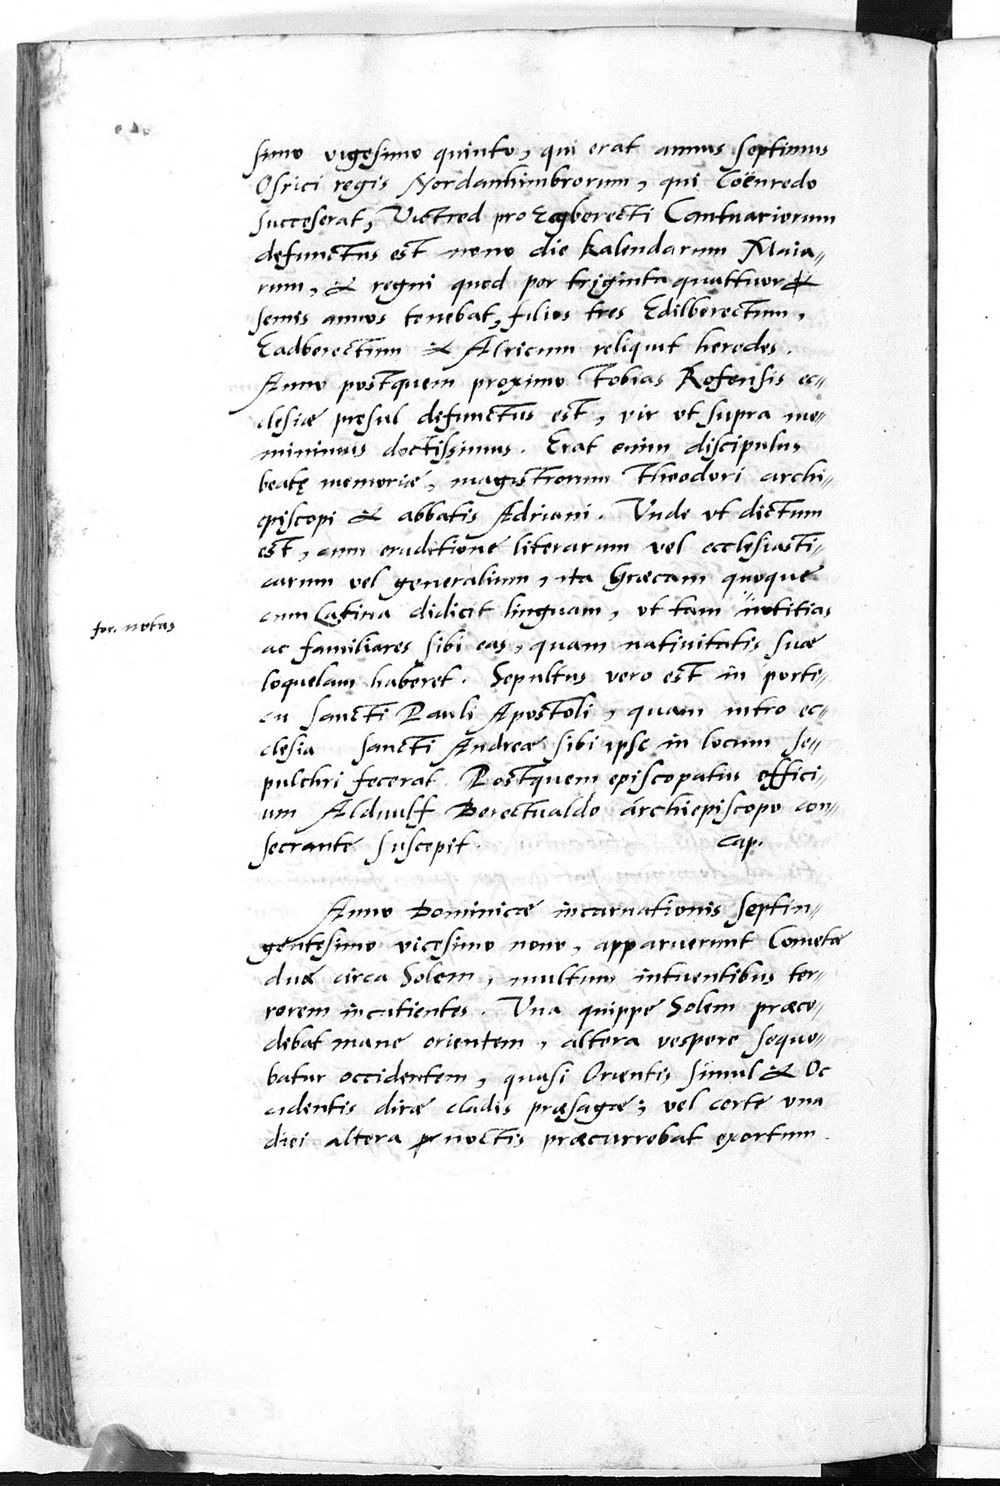 simo vigesimo quinto, qui erat annus septimus
Osrici regis Nordanhimbrorum, qui Coënredo
successerat, Victred pro Ecgberecti Cantuariorum
defunctus est nono die kalendarum Maia„
rum, & regni quod per triginta quattuor &
semis annos tenebat, filios tres Edilberectum,
Eadberectum & Alricum reliquit heredes.
Anno postquem proximo Tobias Rofensis ec„
clesiæ presul defunctus est, vir ut supra me„
minimus doctissimus. Erat enim discipulus
beatę memoriæ, magistrorum Theodori archi„
episcopi & abbatis Adriani. Unde ut dictum
est, cum eruditione literarum vel ecclesiasti„
carum vel generalium, ita Græcam quoque
cum Latina didicit linguam, ut tam notitias
for. notas
ac familiares sibi eas, quam nativitatis suæ
loquelam haberet. Sepultus vero est in porti„
cu sancti Pauli Apostoli, quam intro ec„
clesia sancti Andreæ sibi ipse in locum se„
pulchri fecerat. Postquem episcopatus effici„
um Alduulf Berectualdo archiepiscopo con„
secrante suscepit. cap.
Anno Dominicæ incarnationis septin„
gentesimo vicesimo nono, apparuerunt Cometæ
duæ circa Solem, multum intuentibus ter„
rorem incutientes. Una quippe Solem præce„
debat mane orientem, altera vespere seque„
batur occidentem, quasi Orientis simul & Oc
cidentis diræ cladis præsagæ; vel certe una
diei altera noctis præcurrebat exortum.